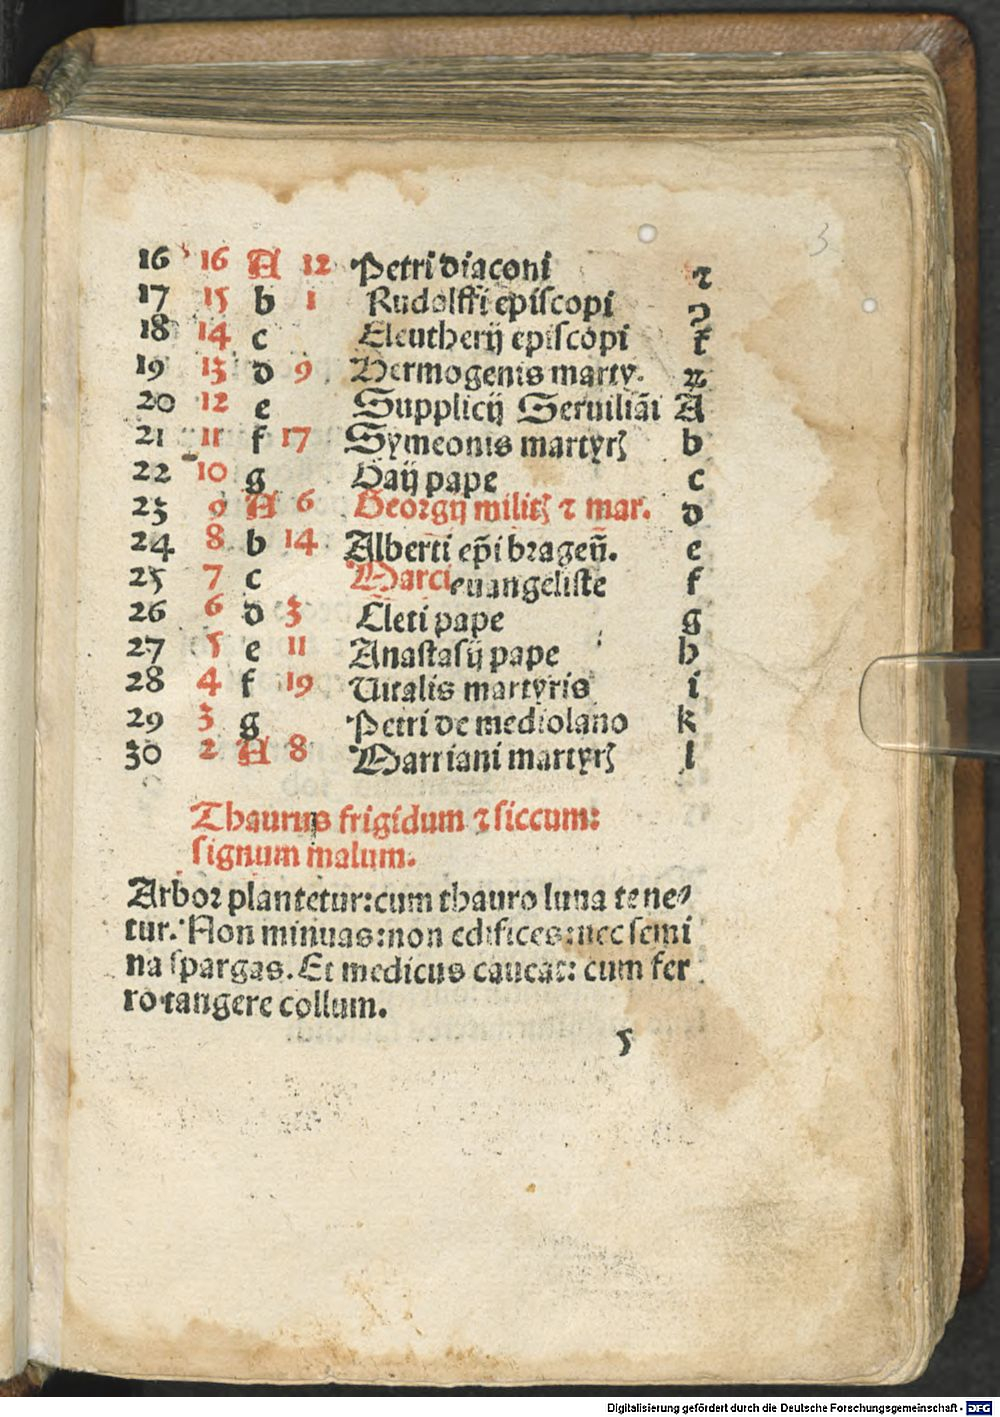 3
16 16 A 12 Petri diaconi ⁊
17 15 b 1 Rudolffi epiſcopi ꝯ
18 14 c Eleutherij epiſcopi
19 13 d 9 Hermogenis marty.
20 12 e Supplicij Seruiliāi A
21 11 f 17 Symeonis martyrꝭ b
22 10 g Gaij pape c
23 9 A 6 Georgij militꝭ ⁊ mar. d
24 8 b 14 Alberti ep̄i bragen̄. e
25 7 c Marci euangeliſte f
26 6 d 3 Cleti pape g
27 5 e 11 Anaſtaſij pape h
28 4 f 19 Uitalis martyris i
29 3 g Petri de mediolano k
30 2 A 8 Marriani martyrꝭ l
Thaurus frigidum ⁊ ſiccum:
ſignum malum.
Arbor plantetur: cum thauro luna tene⸗
tur. Non minuas: non edifices: nec ſemi
na ſpargas. Et medicus caueat: cum fer
ro tangere collum.
5
Digitalisierung gefördert durch die Deutsche Forschungsgemeinschaft - DFG